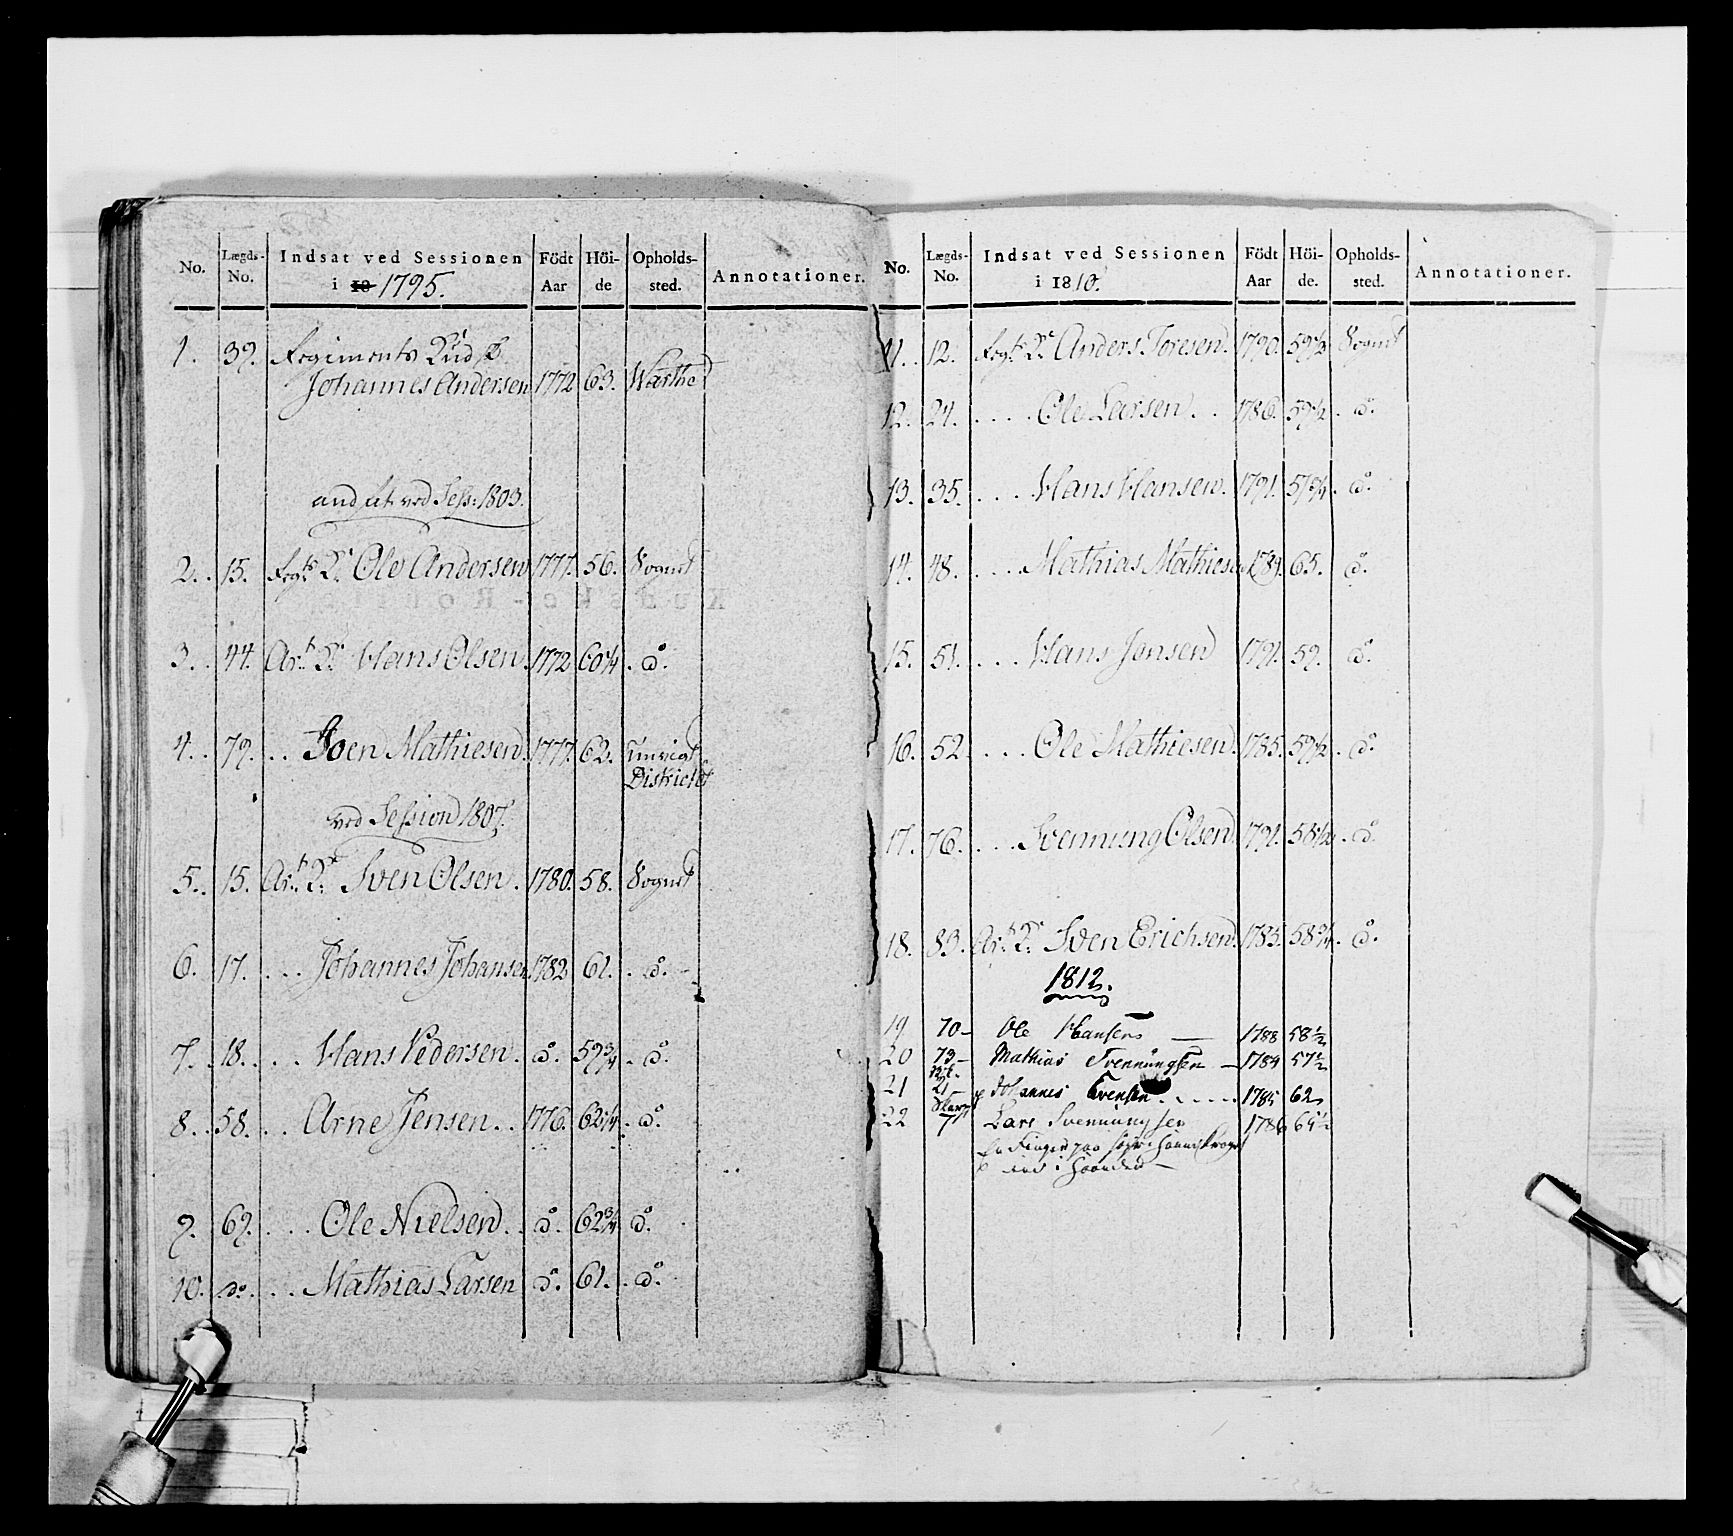 No. Lægds-No. Indsat ved Sessionen i 18 1795. Födt Aar Höi-de Opholds-sted. Annotationer.
1. 39. Regiments Kudsk
Johannes Andersen 1772 63. Warthe
andsat ved Sess: 1803.
2. 15. Regts K. Ole Andersen 1777. 56. Sognet
3. 44. Art. K. Hans Olsen 1772 60 1/4 do.
4. 79. . . Joen Mathiesen. 1777. 62.
District
ved Session 1807.
5. 15. Art. K. Sven Olsen. 1780. 58. Sognet
6. 17. . . . Johannes Johansen 1782 61. do.
7. 18. . . . Hans Pedersen. do. 59 3/4 do.
8. 58. . . Arne Jensen. . 1776. 62 1/4 do.
9. 69. . . . Ole Nielsen. . do. 62 3/4 do.
10. do. . . Mathias Larsen do. 61. do.
No. Lægds-No. Indsat ved Sessionen i 1810. Födt Aar Höi-de. Opholds-sted. Annotationer.
11. 12. Regts K. Anders Toresen. 1790. 59 1/2 Sognet
12. 24. . . . . Ole Larsen. . 1786. 59 1/2 do.
13. 35. . . . . Hans Hansen. 1791. 57 3/4 do.
14. 48. . . . . Mathias Mathiesen 1789. 65. do.
15. 51. . . . Hans Jensen 1791. 59. do.
16. 52. . . . Ole Mathiesen. 1785. 59 1/2 do.
17. 76. . . . Svennung Olsen. 1791. 58 1/2 do.
18. 83. Art. K. Sven Erichsen. 1785. 58 3/4 do.
1812.
19 70 - Ole Hansen — 1788 58 1/2
20 79 - Mathias Svennungsen — 1789 57 1/2
21 21 - Johannes Svensen . . . . . 1785 62
22 7 Lars Svennungsen 1786 61 1/2
en Finger paa
ind i Haanden —